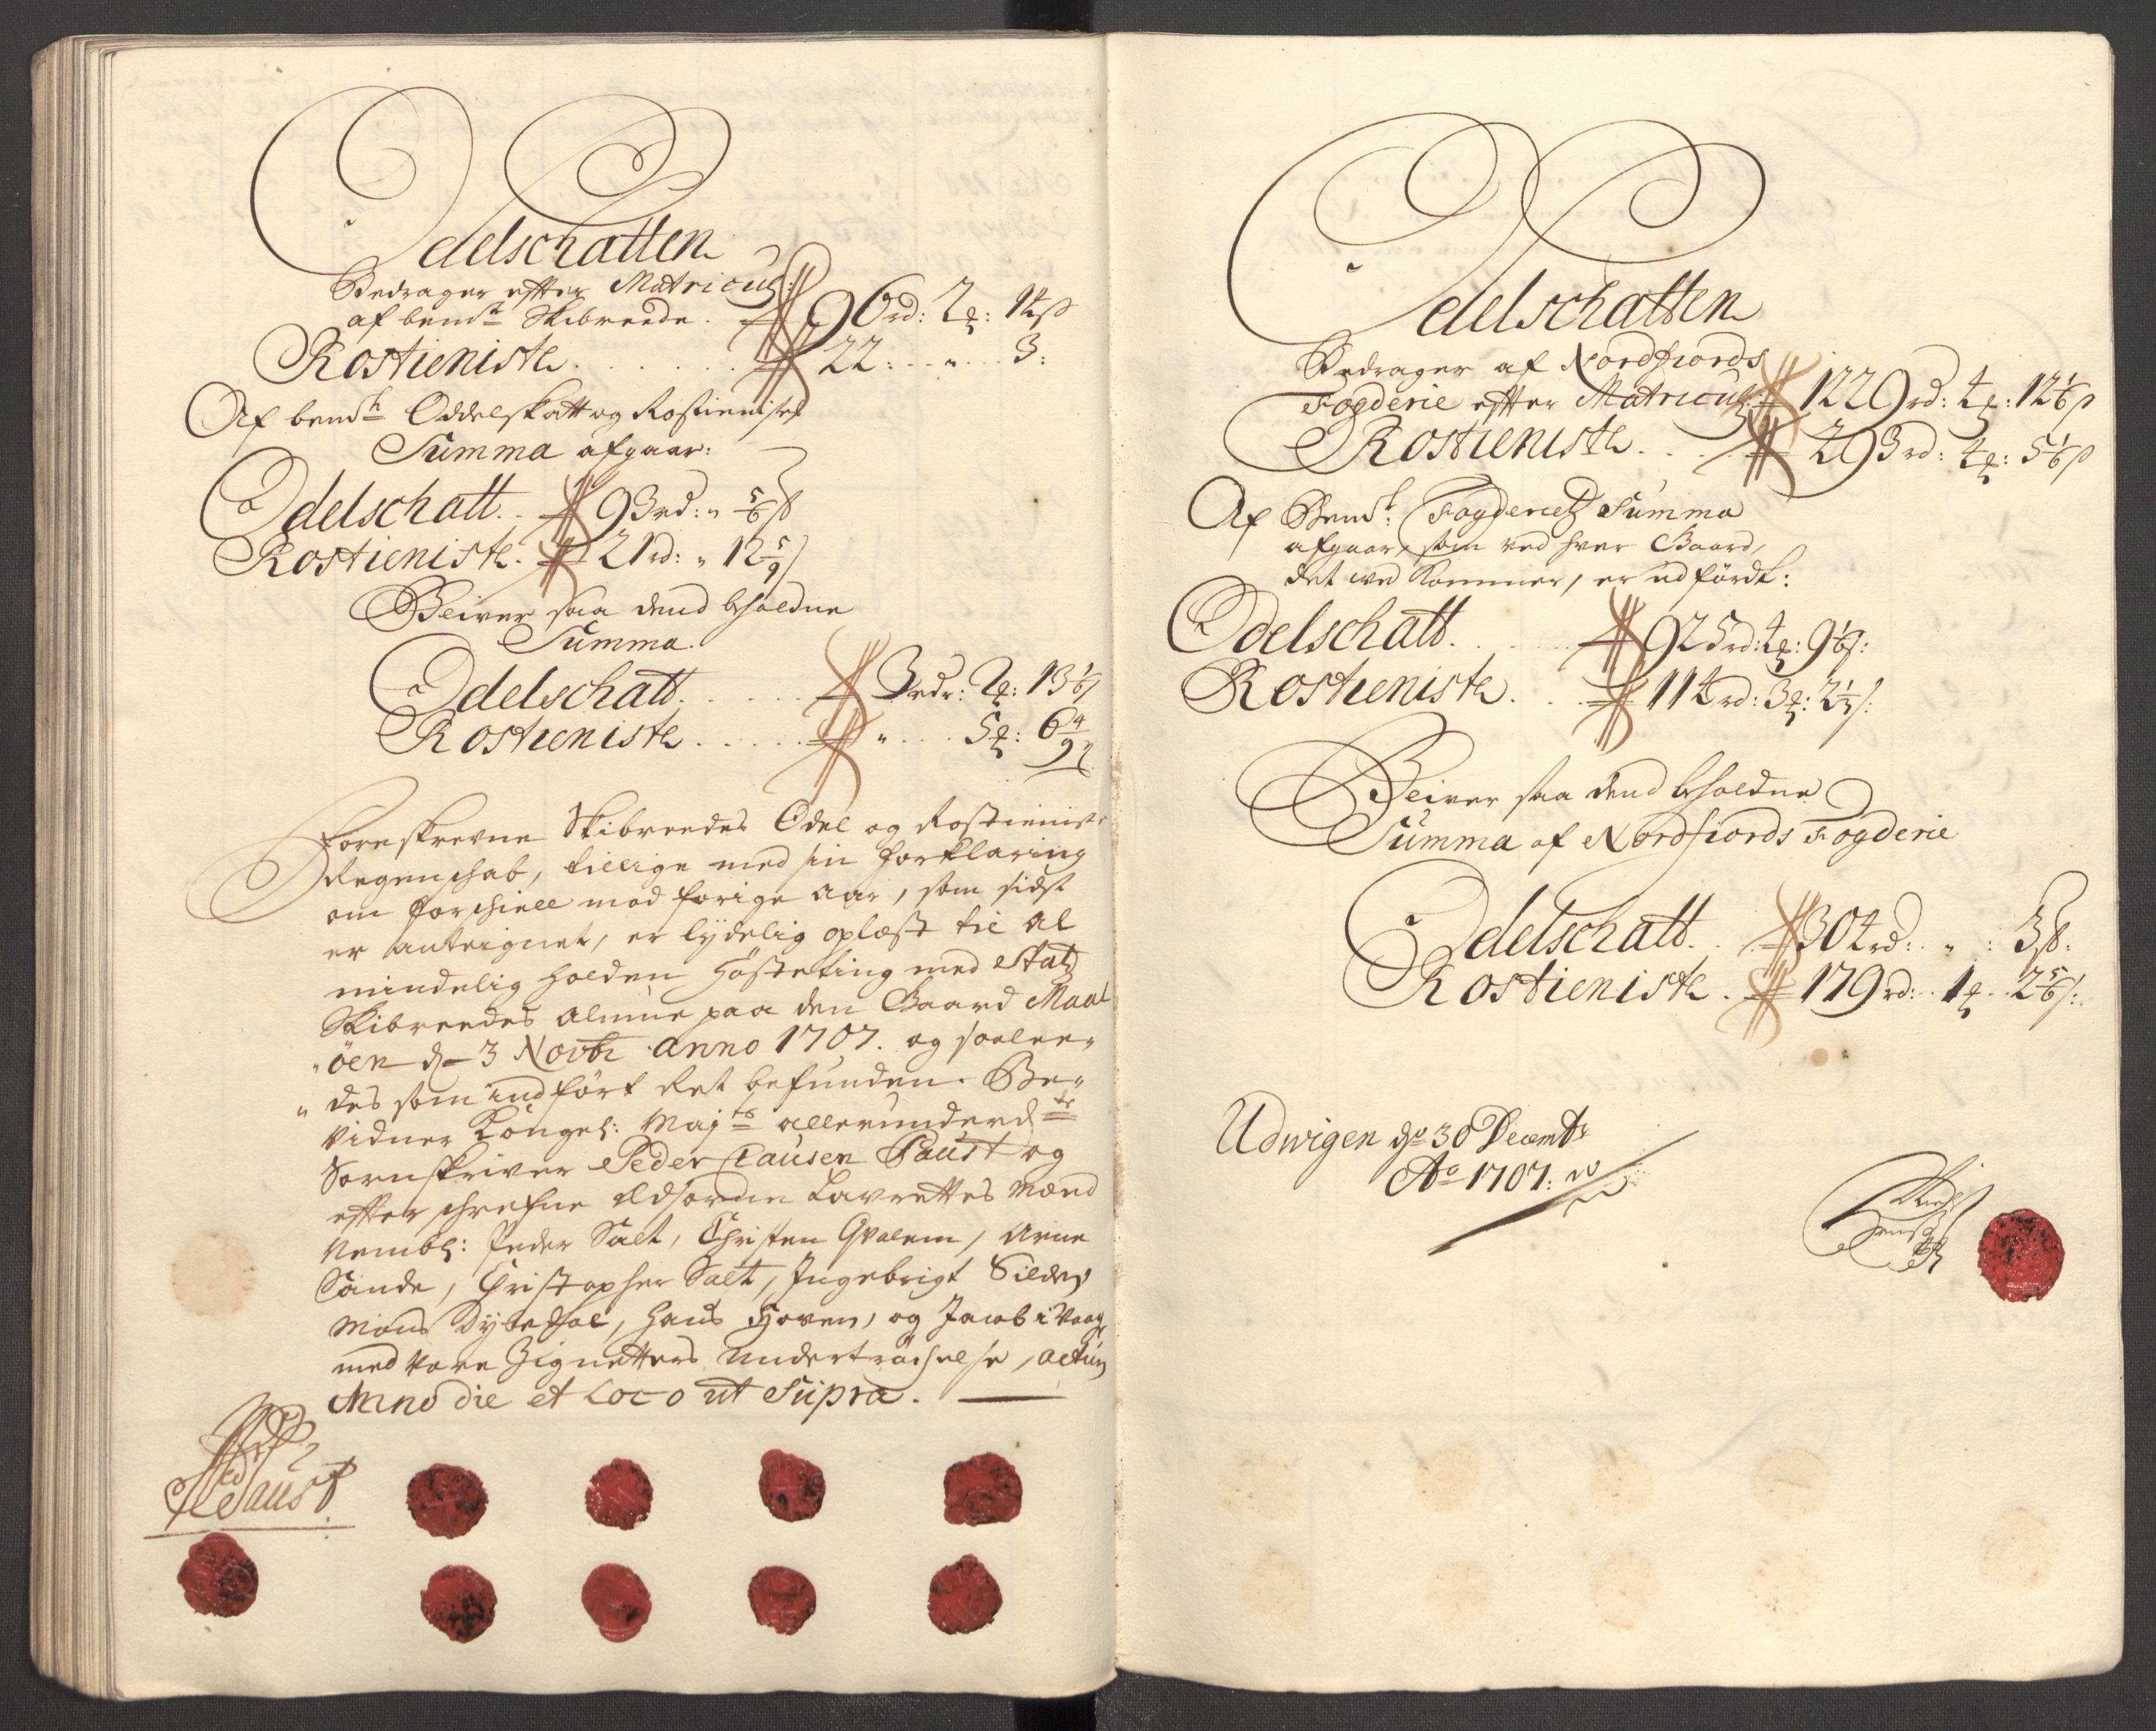 Odelschatten
Bedrager efter Matricul:
af bemte Skibreede. 96 rd: 2 ꝸ: 14 ß
Rostieniste. 22: „ 3:
Af bemte Oddelskatt og Rostienistes
Summa afgaar:
Odelschatt. 93 rd: „ 5/6 ß
Rostieniste. 21 rd: „ 12 5/9 ß
Bliver saa dend beholdne
Summa.
Odelschatt. 3 rdr: 2 ꝸ: 13 1/6 ß
Rostieniste. „ 5 ꝸ: 6 4/9 ß
Foreskrevne Skibreedes Odel og Rostieniste
Regenschab, tillige med sin forklaring
om forschiell mod forige Aar, som sidst
er anteignet, er lydelig oplæst til al
mindelig holden Høsteting med Statz
Skibreedes Almue paa den Gaard Maal
„öen d. 3 Novbr anno 1707. og saalee„
„des som indført Ret befunden. Be„
vidner Kongel: Maj:ts allerunderd:te
Sornskriver Peder Clausen Faust og
efter schrefne Edsorne Laurettes Mænd
Nembl: Peder Salt, Christen Qvalem, Arne
Sande, Christopher Salt, Ingebrigt Silden
Mons Dybedal, Hans Hoven, og Jacob i Vaag
med Vore Zignetters undertröchelse, actum
Anno die et Loco ut Supra.
Faust
Odelschatten
Bedrager af Nordfiords
Fogderie efter Matricul: 1229 rd: 4 ꝸ: 12 1/6 ß
Rostieniste. 293 rd: 4 ꝸ: 5 1/6 ß
Af Bemte: Fogderietz Summa
afgaar, som ved hver Gaard,
det ved kommer, er udfördt:
Odelschatt. 925 rd: 4 ꝸ: 9 1/6 ß:
Rostieniste. 114 rd: 3 ꝸ: 2 1/3 ß:
Bliver saa dend beholdne
Summa af Nordfiords Fogderie
Odelschatt. 304 rd: „ : 3 ß:
Rostieniste. 179 rd: 1 ꝸ. 2 5/6 ß:
Udwigen dn 30 Decembr
Ao 1707: